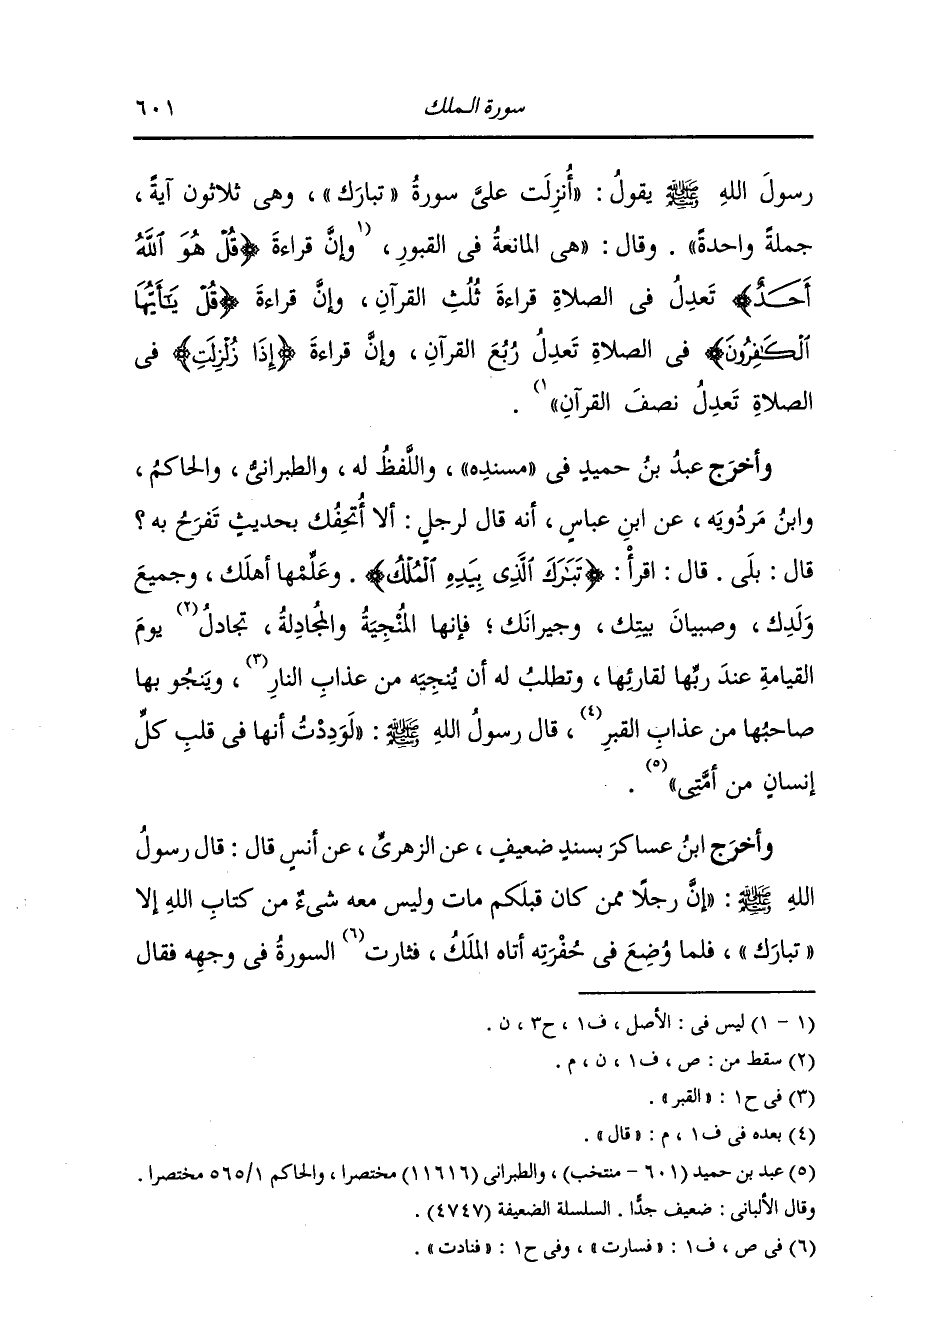 سورة الملك ٦٠١
رسولَ اللهِ ﷺ يقولُ : «أُنزِلَت علىَّ سورةُ «تبارَك» ، وهى ثلاثون آيةً ،
جملةً واحدةً» . وقال : «هى المانعةُ فى القبورِ ، (١وإنَّ قراءةَ ﴿قُلْ هُوَ ٱللَّهُ
أَحَـــدٌ﴾ تَعدِلُ فى الصلاةِ قراءةَ ثُلُثِ القرآنِ ، وإنَّ قراءةَ ﴿قُلْ يَٰٓأَيُّهَا
ٱلْكَٰفِرُونَ﴾ فى الصلاةِ تَعدِلُ رُبُعَ القرآنِ ، وإنَّ قراءةَ ﴿إِذَا زُلْزِلَتِ﴾ فى
الصلاةِ تَعدِلُ نصفَ القرآنِ»١) .
وأخرَج عبدُ بنُ حميدٍ فى «مسندِه» ، واللَّفظُ له ، والطبرانىُّ ، والحاكمُ ،
وابنُ مَردُويَه ، عن ابنِ عباسٍ ، أنه قال لرجلٍ : ألا أُتحِفُك بحديثٍ تَفرَحُ به ؟
قال : بلَى . قال : اقرأْ : ﴿تَبَٰرَكَ ٱلَّذِى بِيَدِهِ ٱلْمُلْكُ﴾ . وعَلِّمْها أهلَك ، وجميعَ
وَلَدِك ، وصبيانَ بيتِك ، وجيرانَك ؛ فإنها المُنْجِيَةُ والمُجادِلةُ ، تجادلُ(٢) يومَ
القيامةِ عندَ ربِّها لقارئِها ، وتطلبُ له أن يُنجِيَه من عذابِ النارِ(٣) ، ويَنجُو بها
صاحبُها من عذابِ القبرِ(٤) ، قال رسولُ اللهِ ﷺ : «لَوَدِدْتُ أنها فى قلبِ كلِّ
إنسانٍ من أمَّتِى»(٥) .
وأخرَج ابنُ عساكرَ بسندٍ ضعيفٍ ، عن الزهرىِّ ، عن أنسٍ قال : قال رسولُ
اللهِ ﷺ : «إنَّ رجلًا ممن كان قبلَكم مات وليس معه شىءٌ من كتابِ اللهِ إلا
«تبارك» ، فلما وُضِعَ فى حُفْرَتِه أتاه الملَكُ ، فثارت(٦) السورةُ فى وجهِه فقال
(١ - ١) ليس فى : الأصل ، ف١ ، ح٣ ، ن .
(٢) سقط من : ص ، ف١ ، ن ، م .
(٣) فى ح١ : «القبر» .
(٤) بعده فى ف١ ، م : «قال» .
(٥) عبد بن حميد (٦٠١ - منتخب) ، والطبرانى (١١٦١٦) مختصرا ، والحاكم ٥٦٥/١ مختصرا .
وقال الألبانى : ضعيف جدًّا . السلسلة الضعيفة (٤٧٤٧) .
(٦) فى ص ، ف١ : «فسارت» ، وفى ح١ : «فنادت» .